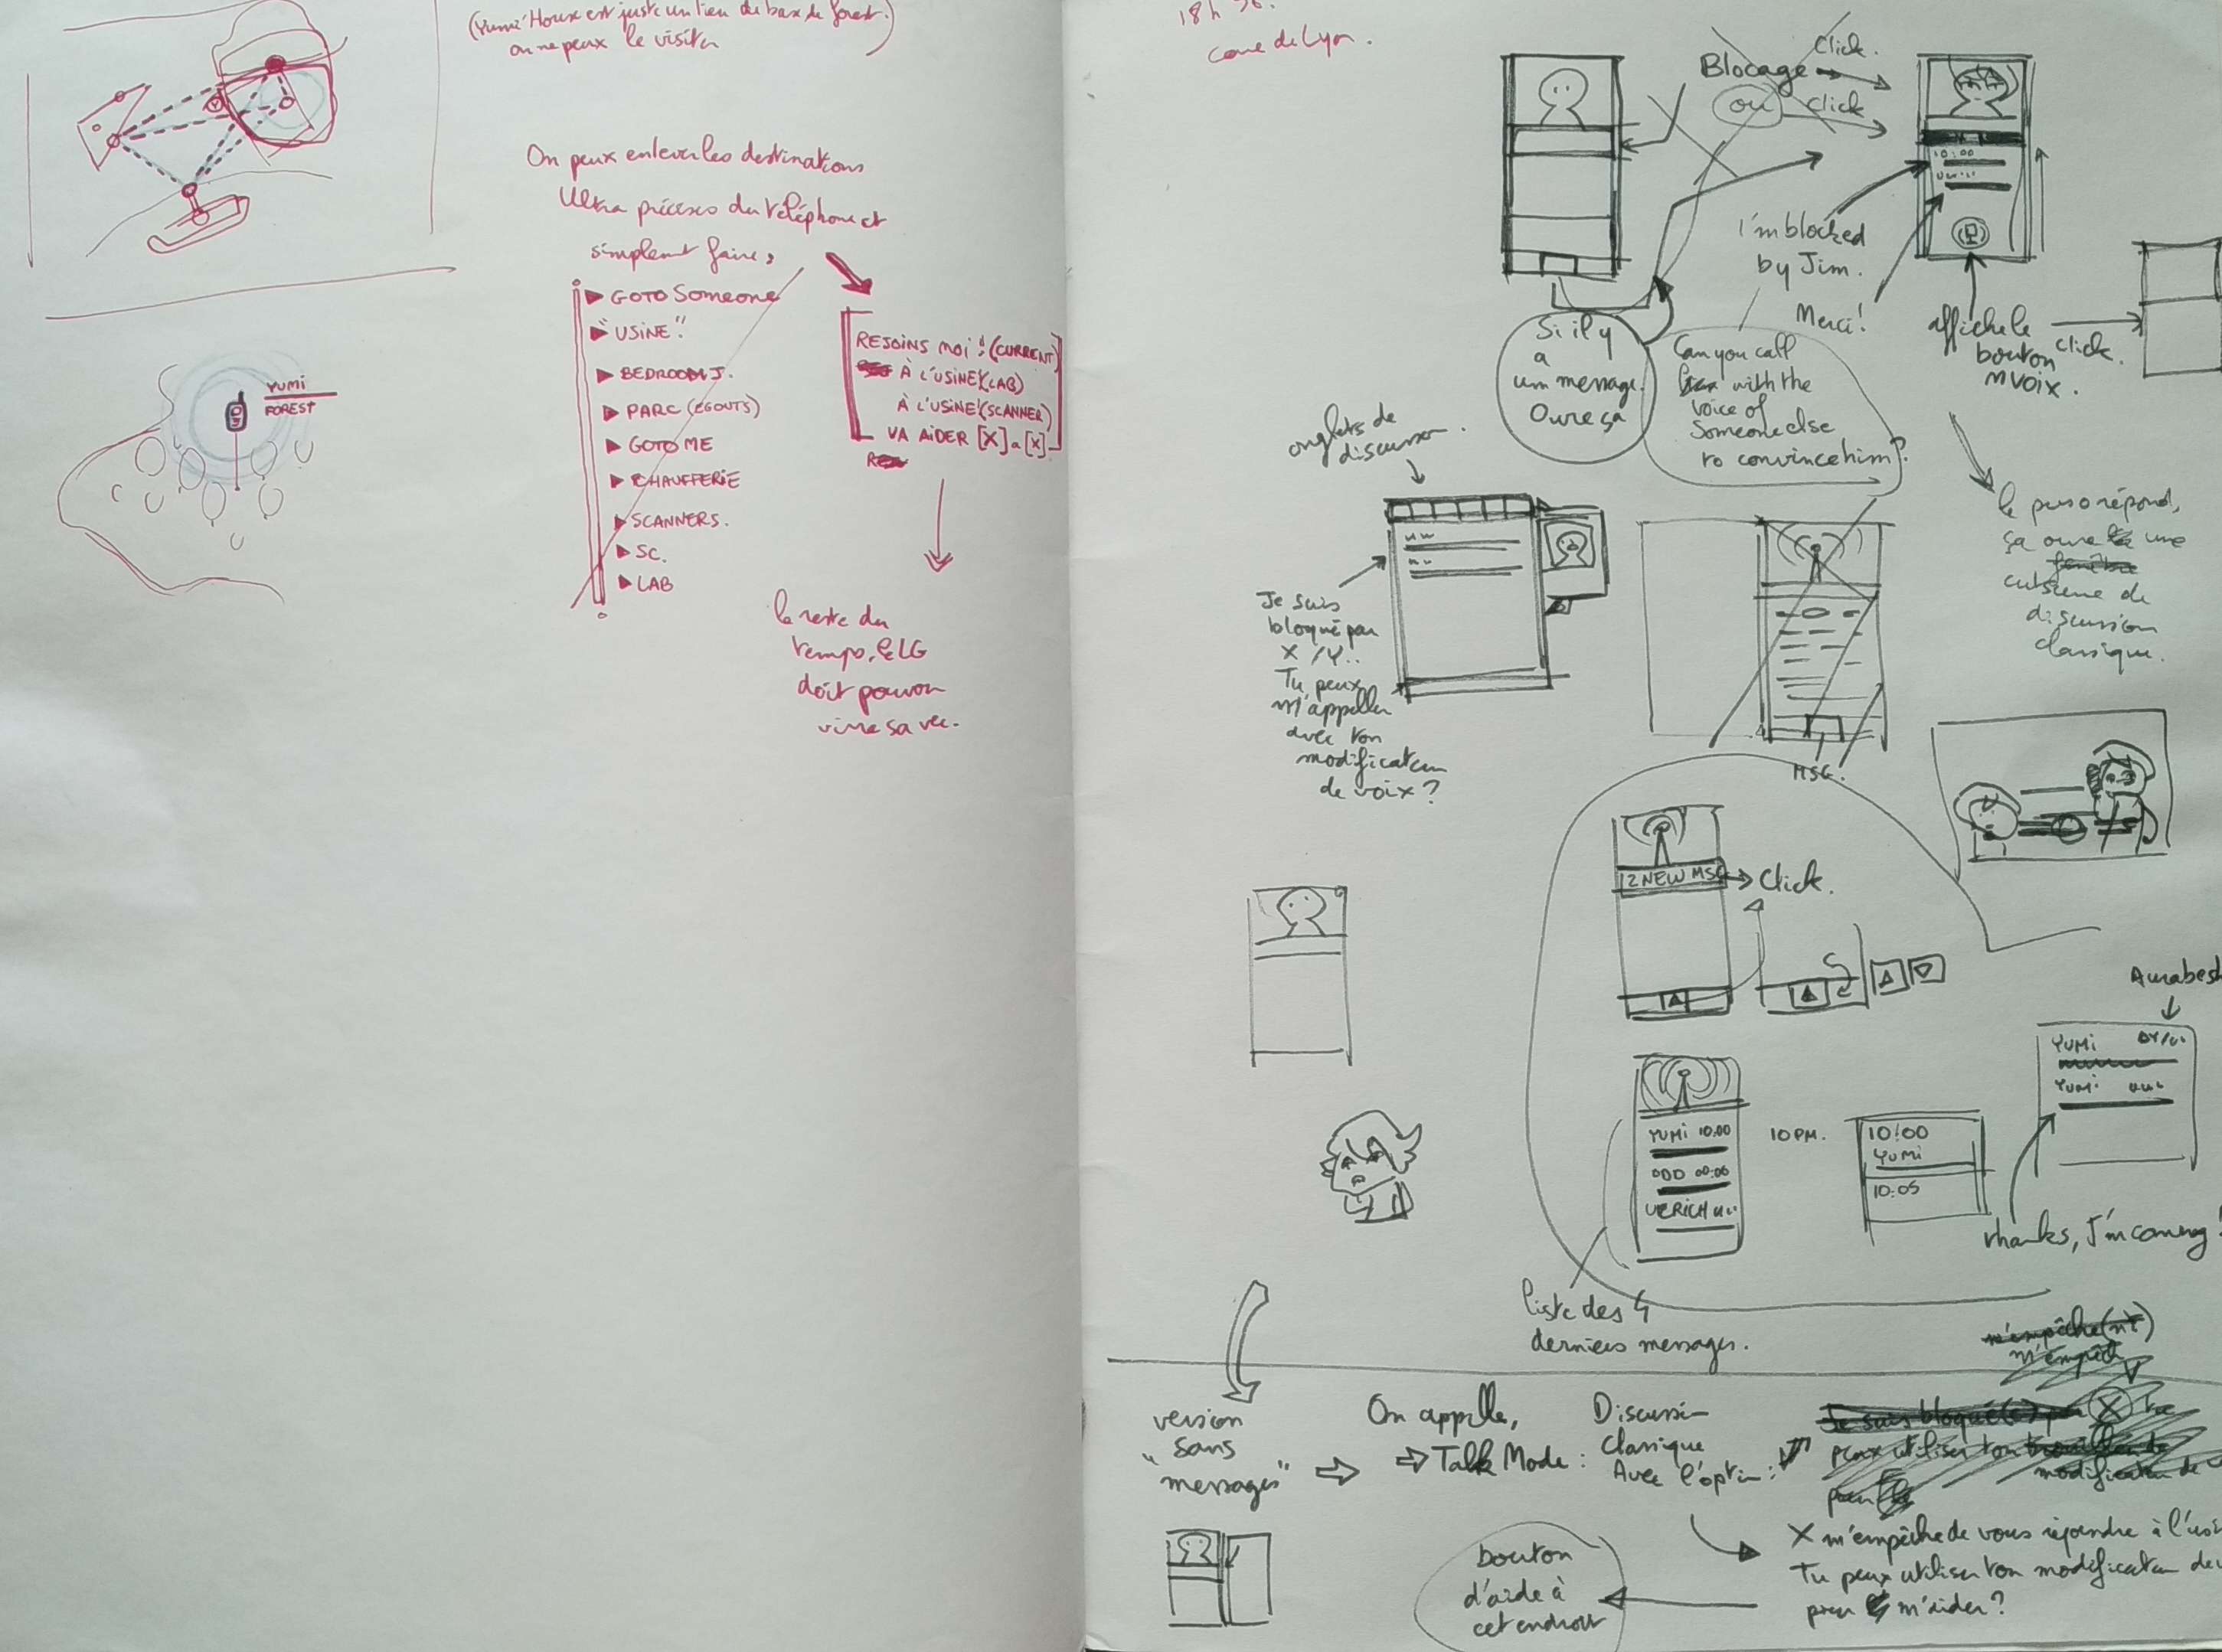 (Yumi'House est juste un lieu de base de forest.
on ne peux le visiter)
On peux enlever les destinations
Ultra précises du téléphone et
simplement faire,
▶ GOTO Someone
▶ "USINE"
▶ BEDROOM J.
▶ PARC (EGOUTS)
▶ GOTO ME
▶ CHAUFFERIE
▶ SCANNERS.
▶ SC.
▶ LAB
REJOINS MOI ! (CURRENT)
À L'USINE (LAB)
À L'USINE (SCANNER)
VA AIDER [X] a [X]
le reste du
temps, le LG
doit pouvoir
vivre sa vie.
YUMI
FOREST
18 h
Blocage
Click.
ou
click
I'm blocked
by Jim.
Merci!
10:00
affiche le
bouton
mvoix.
click.
Si il y
a
un message.
Ouvre ça
Can you call
with the
voice of
Someone else
to convince him?
onglets de
discussion.
Je suis
bloqué par
X / Y..
Tu peux
m'appeller
avec ton
modificateur
de voix ?
MSG.
le perso répond,
ça ouvre une
cutscene de
discussion
classique.
2 NEW MSG
Click.
Aurabesh
YUMI
YUMI
thanks, I'm coming !
YUMI 10:00
ODD 00:00
ULRICH
10 PM.
10:00
YUMI
10:05
liste des 4
derniers messages.
m'empêche(nt)
m'empêch
version
"sans
messages"
On appelle,
⇒ Talk Mode :
Discussion
classique
Avec l'option :
Je suis bloqué(e) par X
peux utiliser ton
modificateur de
pour
X m'empêche de vous rejoindre à l'
Tu peux utiliser ton modificateur de
pour m'aider ?
bouton
d'aide à
cet endroit